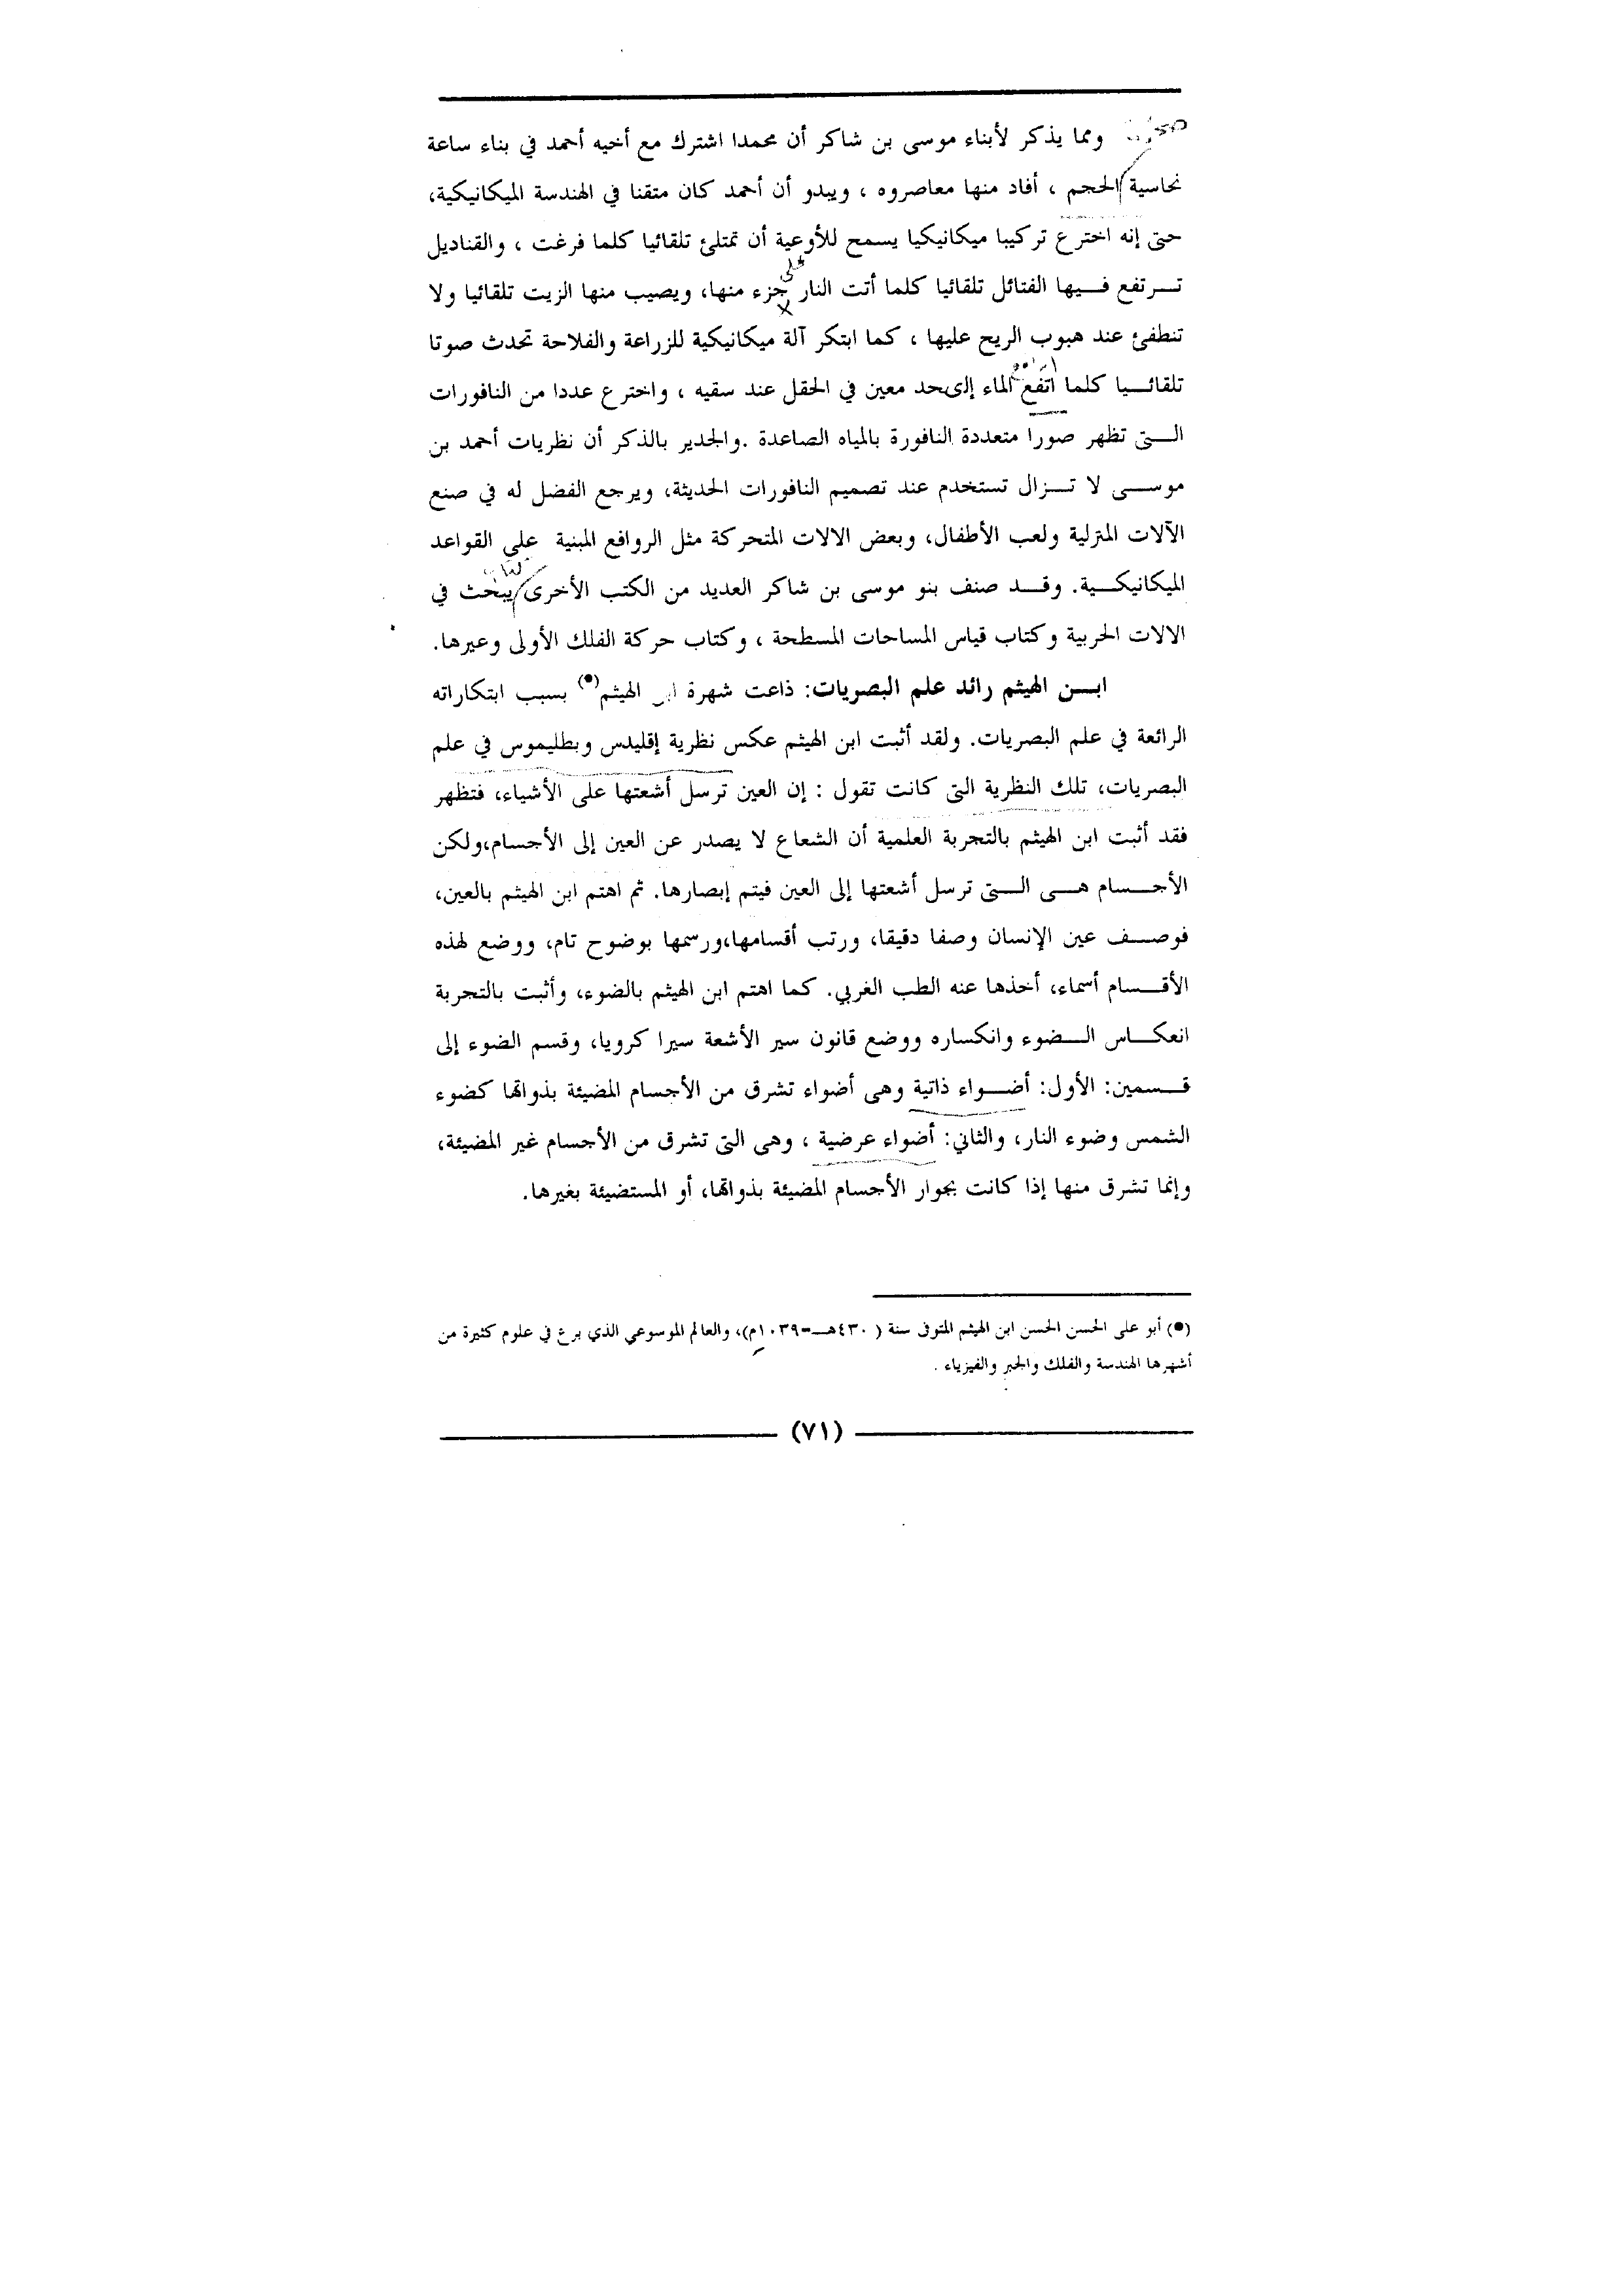 ومما يذكر لأبناء موسى بن شاكر أن محمدا اشترك مع أخيه أحمد في بناء ساعة
نحاسية الحجم ، أفاد منها معاصروه ، ويبدو أن أحمد كان متقنا في الهندسة الميكانيكية،
حتى إنه اخترع تركيبا ميكانيكيا يسمح للأوعية أن تمتلئ تلقائيا كلما فرغت ، والقناديل
على
تـرتفع فـيها الفتائل تلقائيا كلما أتت النار جزء منها، ويصيب منها الزيت تلقائيا ولا
تنطفئ عند هبوب الريح عليها ، كما ابتكر آلة ميكانيكية للزراعة والفلاحة تحدث صوتا
تلقائـيا كلما اتفع الماء إلى حد معين في الحقل عند سقيه ، واخترع عددا من النافورات
الـتى تظهر صورا متعددة النافورة بالمياه الصاعدة .والجدير بالذكر أن نظريات أحمد بن
موسـى لا تـزال تستخدم عند تصميم النافورات الحديثة، ويرجع الفضل له في صنع
الآلات المنزلية ولعب الأطفال، وبعض الالات المتحركة مثل الروافع المبنية على القواعد
الميكانيكـية. وقـد صنف بنو موسى بن شاكر العديد من الكتب الأخرى يبحث في
الالات الحربية وكتاب قياس المساحات المسطحة ، وكتاب حركة الفلك الأولى وعيرها.
ابـن الهيثم رائد علم البصريات: ذاعت شهرة ابن الهيثم(●) بسبب ابتكاراته
الرائعة في علم البصريات. ولقد أثبت ابن الهيثم عكس نظرية إقليدس وبطليموس في علم
البصريات، تلك النظرية التى كانت تقول : إن العين ترسل أشعتها على الأشياء، فتظهر
فقد أثبت ابن الهيثم بالتجربة العلمية أن الشعاع لا يصدر عن العين إلى الأجسام،ولكن
الأجـسام هـى الـتى ترسل أشعتها إلى العين فيتم إبصارها. ثم اهتم ابن الهيثم بالعين،
فوصـف عين الإنسان وصفا دقيقا، ورتب أقسامها،ورسمها بوضوح تام، ووضع لهذه
الأقـسام أسماء، أخذها عنه الطب الغربي. كما اهتم ابن الهيثم بالضوء، وأثبت بالتجربة
انعكـاس الـضوء وانكساره ووضع قانون سير الأشعة سيرا كرويا، وقسم الضوء إلى
قـسمين: الأول: أضـواء ذاتية وهى أضواء تشرق من الأجسام المضيئة بذواتها كضوء
الشمس وضوء النار، والثاني: أضواء عرضية ، وهى التى تشرق من الأجسام غير المضيئة،
وإنما تشرق منها إذا كانت بجوار الأجسام المضيئة بذواتها، أو المستضيئة بغيرها.
(●) أبو على الحسن الحسن ابن الهيثم المتوفى سنة ( ٤٣٠هـ-١٠٣٩م)، والعالم الموسوعي الذي برع في علوم كثيرة من
أشهرها الهندسة والفلك والجبر والفيزياء .
(٧١)